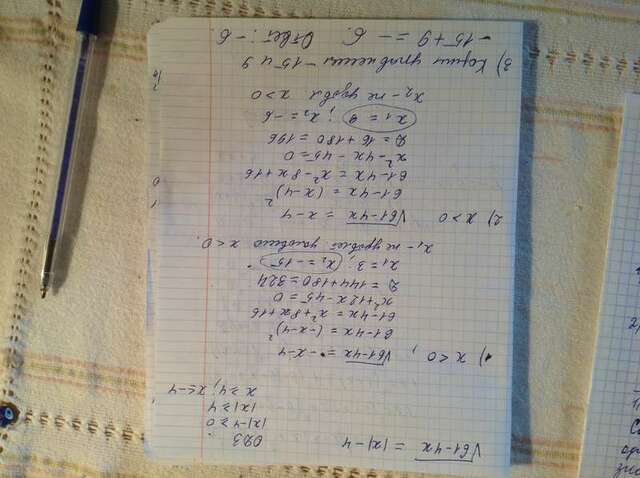 √61-4x = |x|-4
ОДЗ
|x|-4 ≥ 0
|x| ≥ 4
x ≥ 4; x ≤ -4
1) x < 0, √61-4x = -x-4
61-4x = (-x-4)²
61-4x = x²+8x+16
x²+12x-45=0
D = 144+180=324
x₁=3; x₂=-15
x₁- не удовлет. условию x<0.
2) x > 0 √61-4x = x-4
61-4x = (x-4)²
61-4x = x²-8x+16
x²-4x-45=0
D=16+180=196
x₁ = 9; x₂=-6
x₂- не удовл. x>0
3) Корни уравнения -15 и 9
-15+9=-6. Ответ: -6